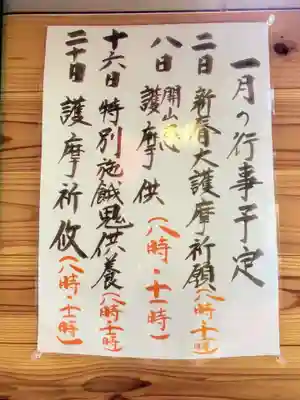 一月の行事予定
二日 新春大護摩祈願(八時・十一時)
八日 開山忌 護摩供(八時・十一時)
十六日 特別施餓鬼供養(八時・十一時)
二十日 護摩祈攸(八時・十一時)